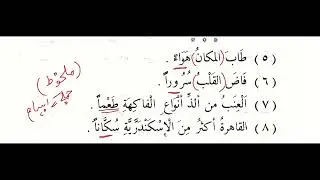 (٥) طَابَ (المكانُ) هَوَاءً .
(٦) فَاضَ (القَلْبُ) سُرُوراً .
(٧) اَلْعِنَبُ من أَلَذِّ أَنْوَاعِ الْفَاكِهَةِ طَعْماً .
(٨) القاهرةُ أكثرُ مِنَ الْإِسْكَنْدَرِيَّةِ سُكَّاناً .
(ملحوظ)